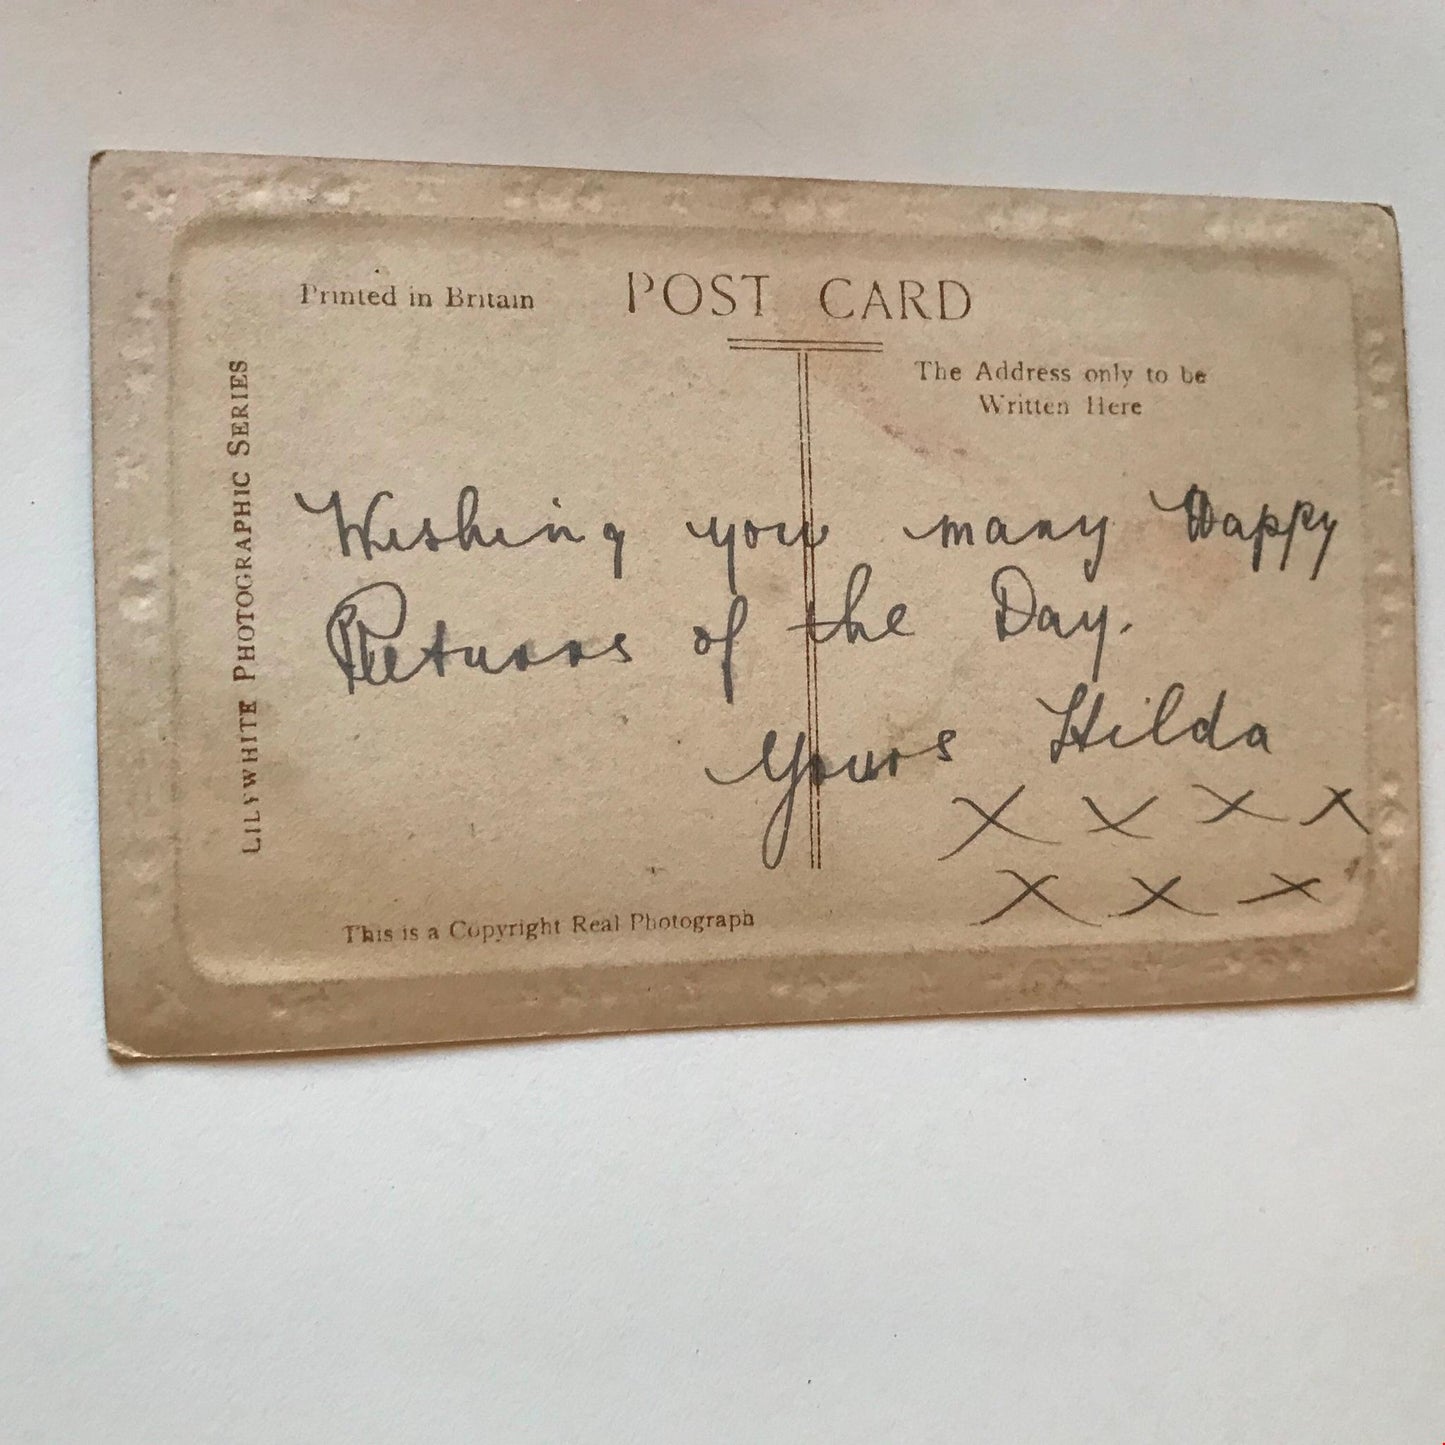 Printed in Britain
POST CARD
The Address only to be
Written Here
LILYWHITE PHOTOGRAPHIC SERIES
Wishing you many Happy
Returns of the Day.
Yours Hilda
X X X X
X X X
This is a Copyright Real Photograph